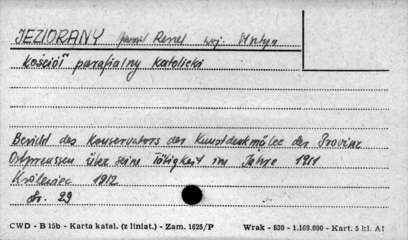 JEZIORANY powiat Reszel woj. Olsztyn
Kościół parafialny katolicki
Bericht des Konservators der Kunstdenkmäler der Provinz
Ostpreussen über seine Tätigkeit im Jahre 1911
Królewiec 1912
Str. 29
CWD - B 15b - Karta katal. (z liniat.) - Zam. 1625/P Wrak - 830 - 1.169.000 - Kart. 5 kl. A1